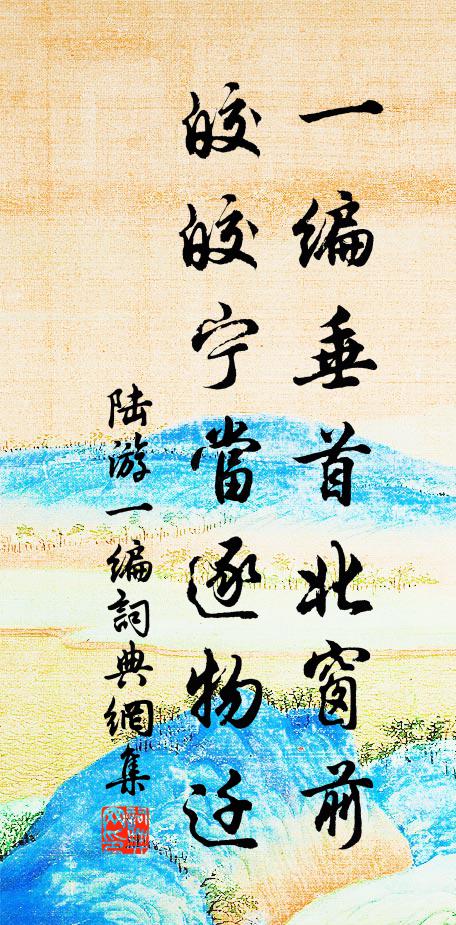 一编垂首北窗前
皎皎宁當逐物迁
陆游一编詞典網集